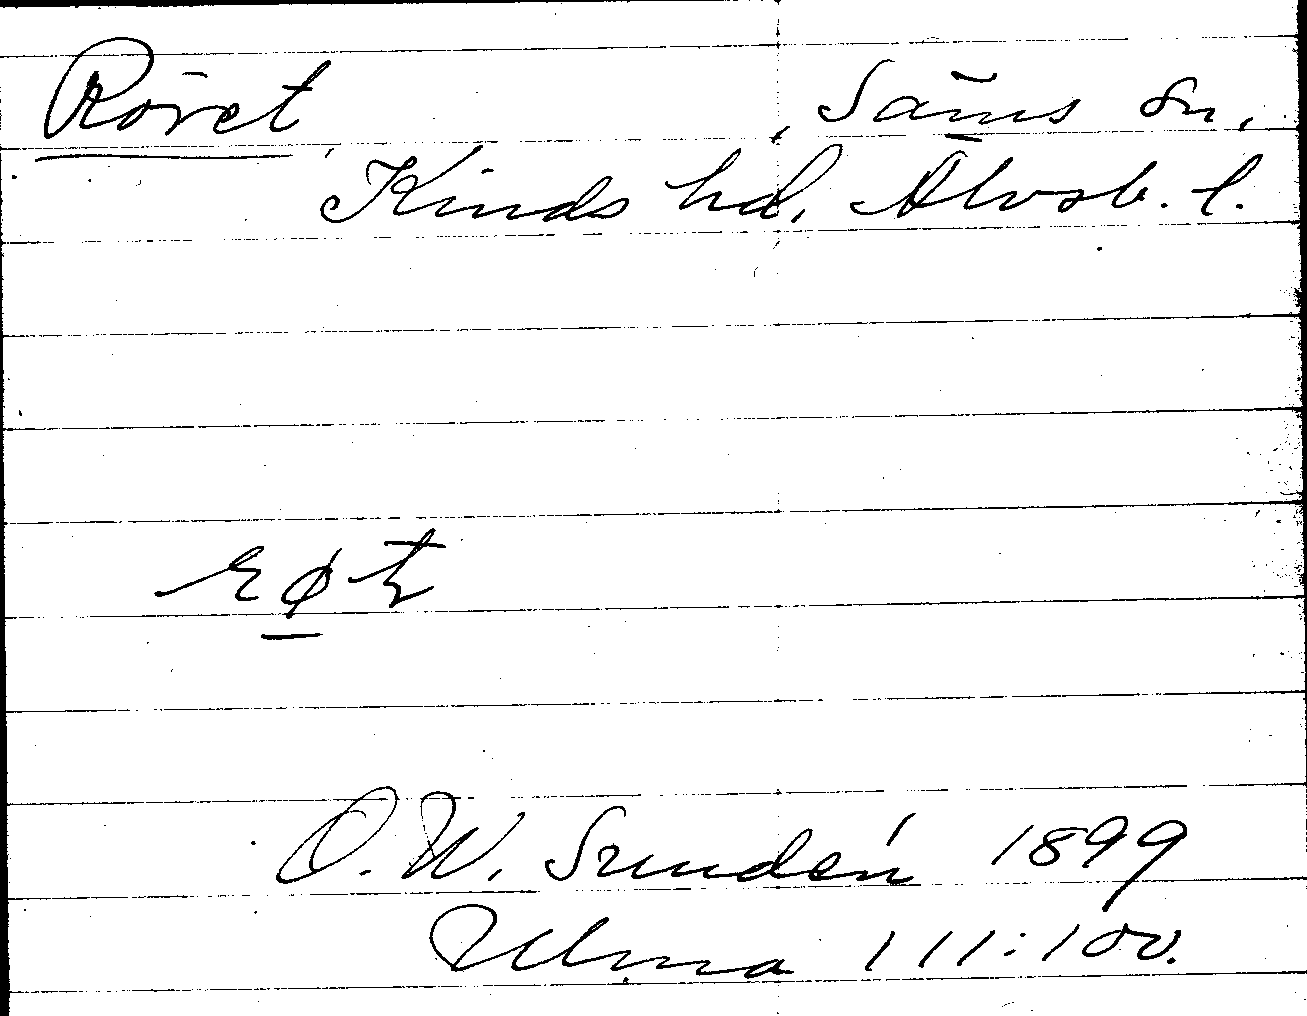 Röret, Säms sn,
Kinds hd, Älvsb. l.
røt
O. W. Sundén 1899
Ulma 111:100.